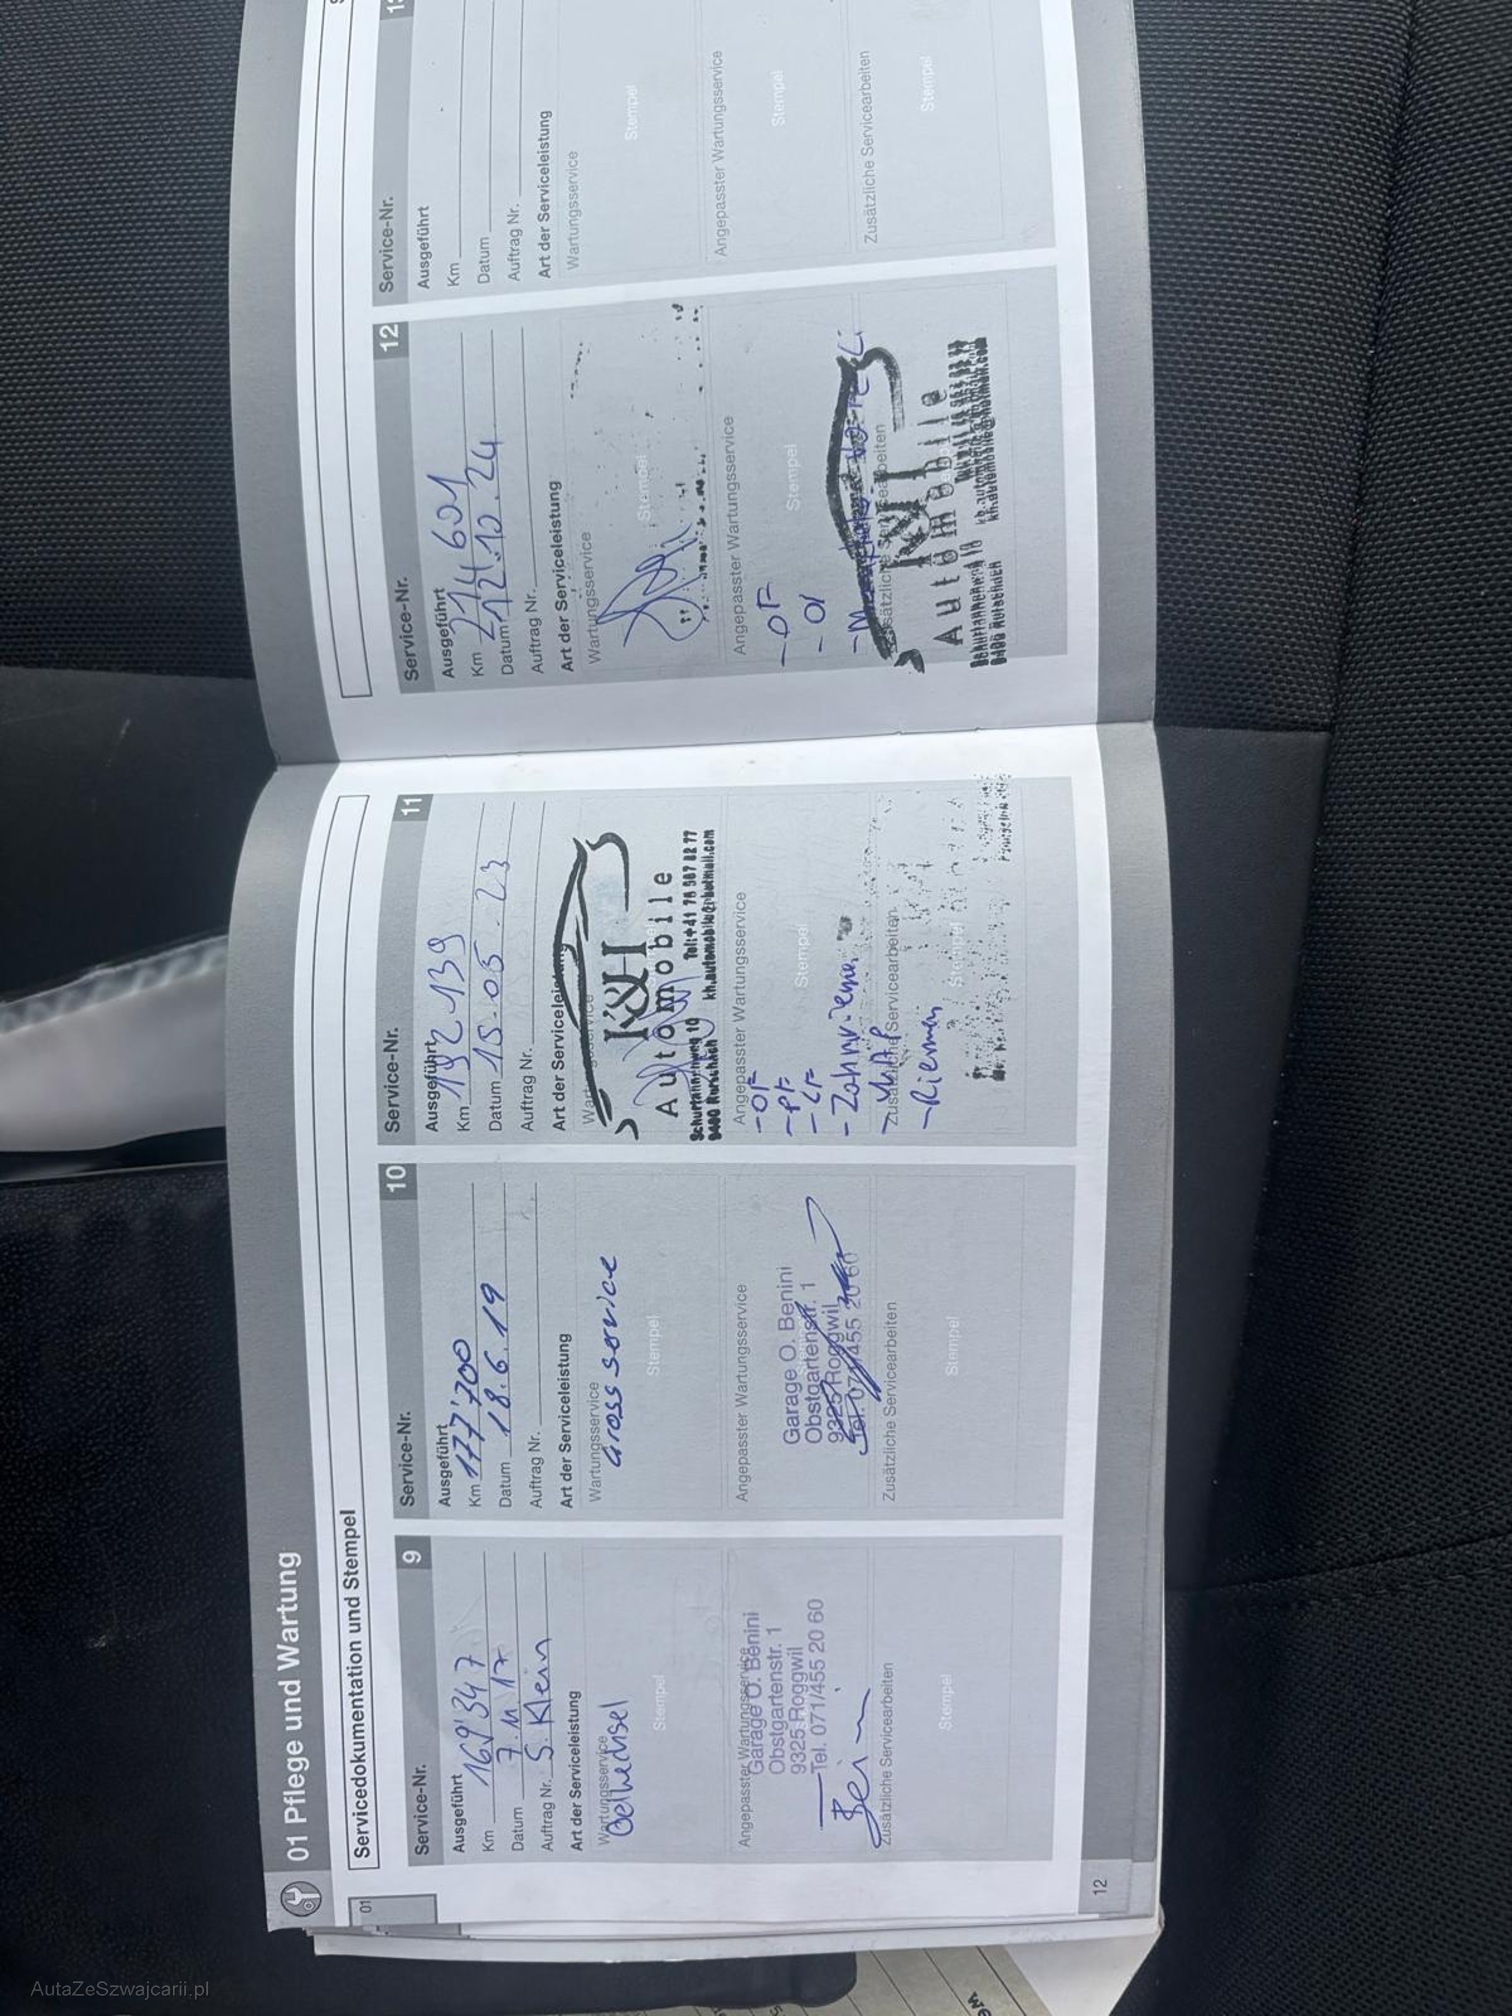 01 Pflege und Wartung
01
Servicedokumentation und Stempel
Service-Nr. 9
Ausgeführt
Km 169'347
Datum 7.11.17
Auftrag Nr. S. Klein
Art der Serviceleistung
Wartungsservice
Oelwechsel
Stempel
Angepasster Wartungsservice
Garage O. Benini
Obstgartenstr. 1
9325 Roggwil
Tel. 071/455 20 60
Zusätzliche Servicearbeiten
Stempel
Service-Nr. 10
Ausgeführt
Km 177'700
Datum 18.6.19
Auftrag Nr.
Art der Serviceleistung
Wartungsservice
Gross service
Stempel
Angepasster Wartungsservice
Garage O. Benini
Obstgartenstr. 1
9325 Roggwil
Tel. 071/455 20 60
Zusätzliche Servicearbeiten
Stempel
Service-Nr. 11
Ausgeführt
Km 192 139
Datum 15.05.23
Auftrag Nr.
Art der Serviceleistung
K&H
Automobile
9400 Rorschach kh.automobile@hotmail.com
Angepasster Wartungsservice
- OF
- PF
- LF
Stempel
Zusätzliche Servicearbeiten
- Riemen
Stempel
12
Service-Nr. 12
Ausgeführt
Km 214 601
Datum 12.10.24
Auftrag Nr.
Art der Serviceleistung
Wartungsservice
Stempel
Angepasster Wartungsservice
- OF
- Öl
Stempel
Zusätzliche Servicearbeiten
K&H
Automobile
9400 Rorschach
Service-Nr.
Ausgeführt
Km
Datum
Auftrag Nr.
Art der Serviceleistung
Wartungsservice
Stempel
Angepasster Wartungsservice
Stempel
Zusätzliche Servicearbeiten
Stempel
AutaZeSzwajcarii.pl